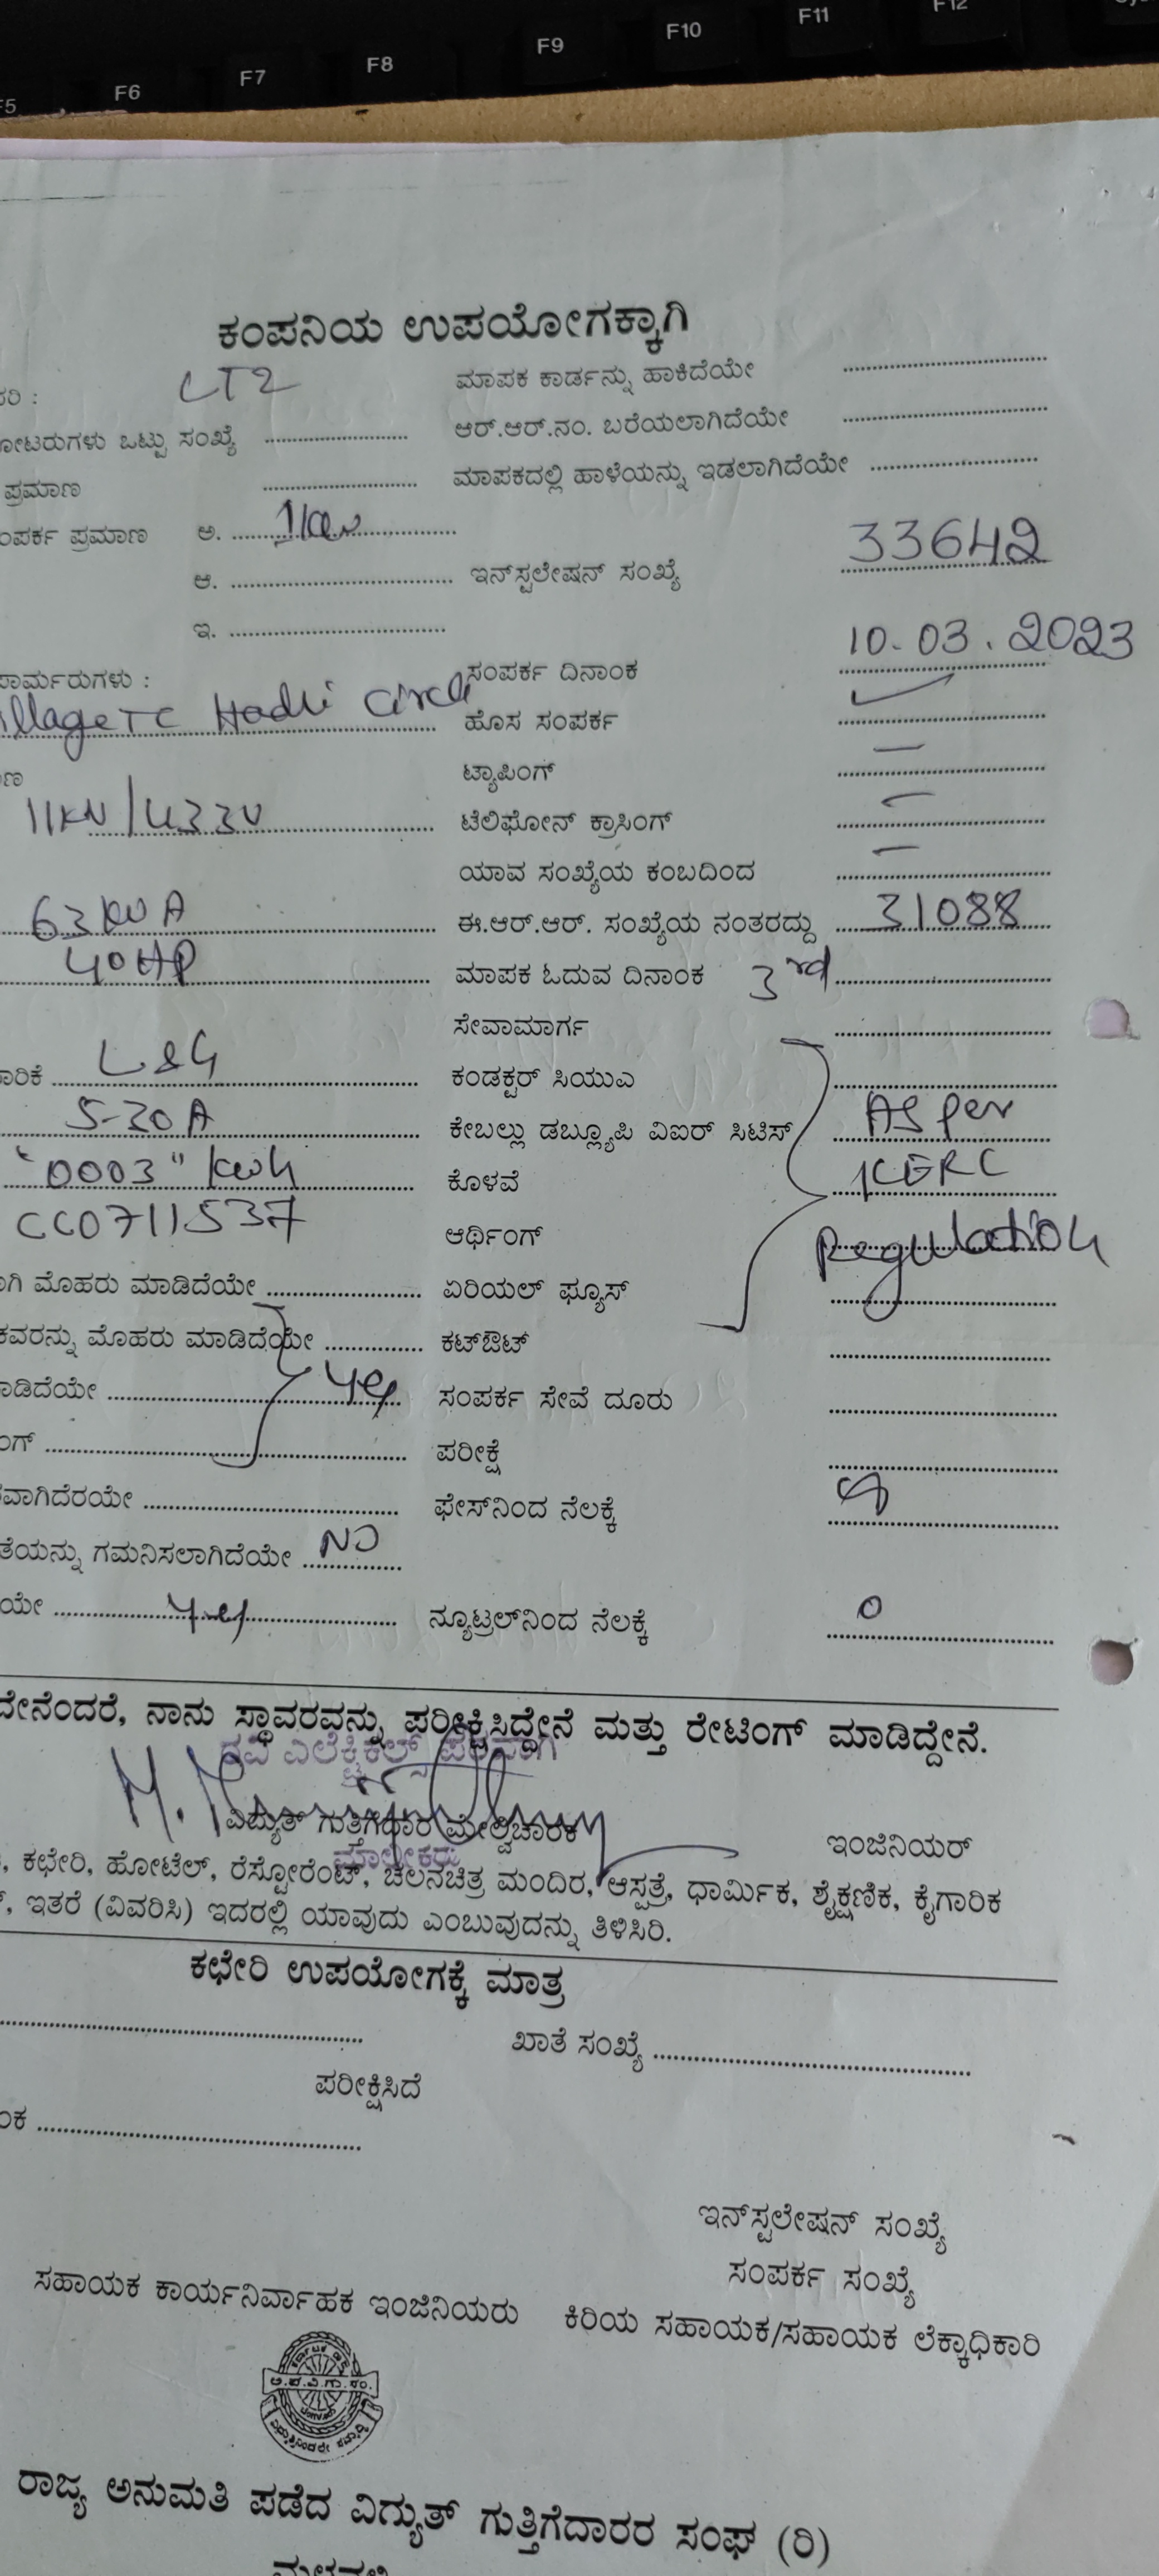 F5 F6 F7 F8 F9 F10 F11 F12
ಕಂಪನಿಯ ಉಪಯೋಗಕ್ಕಾಗಿ
LT2 ಮಾಪಕ ಕಾರ್ಡನ್ನು ಹಾಕಿದೆಯೇ
ಒಟ್ಟು ಸಂಖ್ಯೆ ಆರ್.ಆರ್.ನಂ. ಬರೆಯಲಾಗಿದೆಯೇ
ಪ್ರಮಾಣ ಮಾಪಕದಲ್ಲಿ ಹಾಳೆಯನ್ನು ಇಡಲಾಗಿದೆಯೇ
ಪ್ರಮಾಣ ಅ. 1kw
ಆ. ಇನ್‌ಸ್ಟಲೇಷನ್ ಸಂಖ್ಯೆ 33642
ಇ.
ಸಂಪರ್ಕ ದಿನಾಂಕ 10-03.2023
TC Hadli Circle ಹೊಸ ಸಂಪರ್ಕ
ಟ್ಯಾಪಿಂಗ್ —
11KV/433V ಟೆಲಿಫೋನ್ ಕ್ರಾಸಿಂಗ್ —
ಯಾವ ಸಂಖ್ಯೆಯ ಕಂಬದಿಂದ —
63KVA ಈ.ಆರ್.ಆರ್. ಸಂಖ್ಯೆಯ ನಂತರದ್ದು 31088
40HP ಮಾಪಕ ಓದುವ ದಿನಾಂಕ 3rd
ಸೇವಾಮಾರ್ಗ
L&G ಕಂಡಕ್ಟರ್ ಸಿಯುಎ
5-30A ಕೇಬಲ್ಲು ಡಬ್ಲ್ಯೂಪಿ ವಿಐರ್ ಸಿಟಿಸ್ AS per
"0003" kwh ಕೊಳವೆ KERC
CC0711537 ಆರ್ಥಿಂಗ್ Regulation
ಮೊಹರು ಮಾಡಿದೆಯೇ ಏರಿಯಲ್ ಫ್ಯೂಸ್
ಮೊಹರು ಮಾಡಿದೆಯೇ ಕಟ್‌ಔಟ್
yes ಸಂಪರ್ಕ ಸೇವೆ ದೂರು
ಪರೀಕ್ಷೆ
ಫೇಸ್‌ನಿಂದ ನೆಲಕ್ಕೆ
ಗಮನಿಸಲಾಗಿದೆಯೇ NO
yes ನ್ಯೂಟ್ರಲ್‌ನಿಂದ ನೆಲಕ್ಕೆ 0
ನಾನು ಸ್ಥಾವರವನ್ನು ಪರೀಕ್ಷಿಸಿದ್ದೇನೆ ಮತ್ತು ರೇಟಿಂಗ್ ಮಾಡಿದ್ದೇನೆ.
ವಿದ್ಯುತ್ ಗುತ್ತಿಗೆದಾರ ಮೇಲ್ವಿಚಾರಕ ಇಂಜಿನಿಯರ್
ಮಾಲೀಕರು
, ಕಛೇರಿ, ಹೋಟೆಲ್, ರೆಸ್ಟೋರೆಂಟ್, ಚಲನಚಿತ್ರ ಮಂದಿರ, ಆಸ್ಪತ್ರೆ, ಧಾರ್ಮಿಕ, ಶೈಕ್ಷಣಿಕ, ಕೈಗಾರಿಕ
, ಇತರೆ (ವಿವರಿಸಿ) ಇದರಲ್ಲಿ ಯಾವುದು ಎಂಬುವುದನ್ನು ತಿಳಿಸಿರಿ.
ಕಛೇರಿ ಉಪಯೋಗಕ್ಕೆ ಮಾತ್ರ
ಖಾತೆ ಸಂಖ್ಯೆ
ಪರೀಕ್ಷಿಸಿದೆ
ಇನ್‌ಸ್ಟಲೇಷನ್ ಸಂಖ್ಯೆ
ಸಂಪರ್ಕ ಸಂಖ್ಯೆ
ಸಹಾಯಕ ಕಾರ್ಯನಿರ್ವಾಹಕ ಇಂಜಿನಿಯರು ಕಿರಿಯ ಸಹಾಯಕ/ಸಹಾಯಕ ಲೆಕ್ಕಾಧಿಕಾರಿ
ಅ.ಪ.ವಿ.ಗು.ಸಂ.
ರಾಜ್ಯ ಅನುಮತಿ ಪಡೆದ ವಿದ್ಯುತ್ ಗುತ್ತಿಗೆದಾರರ ಸಂಘ (ರಿ)